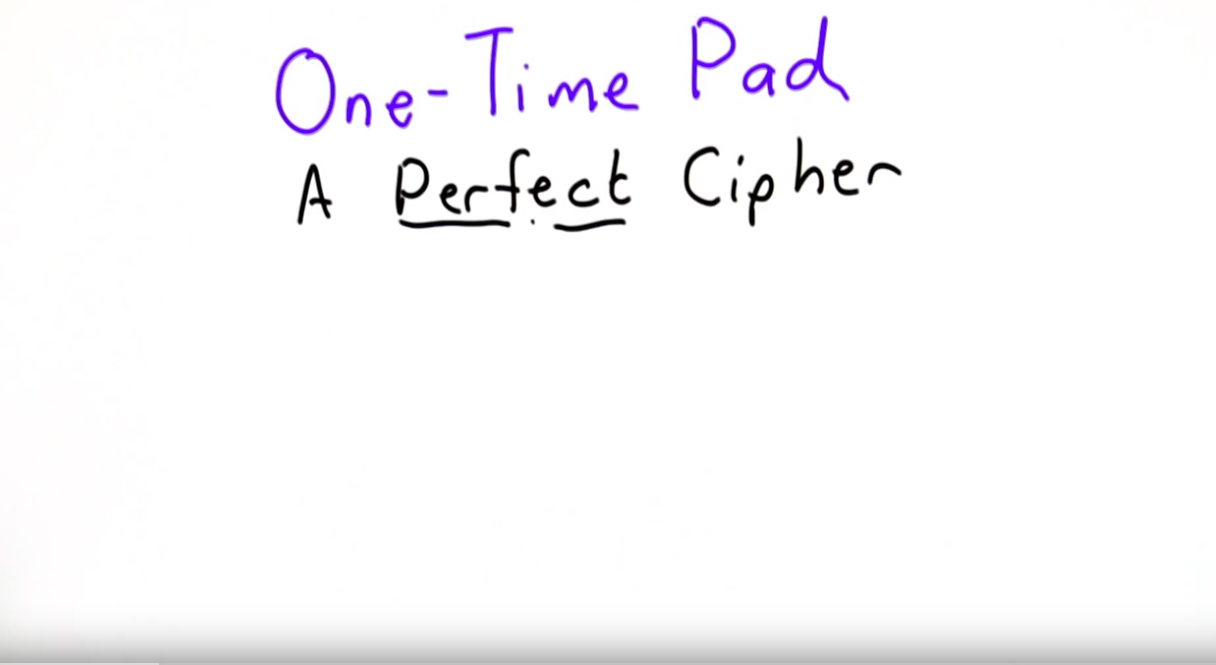 One-Time Pad
A Perfect Cipher